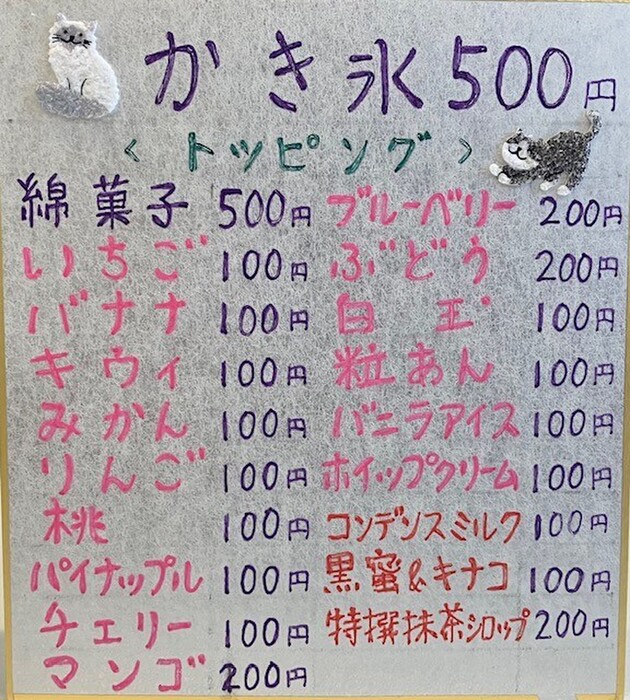 かき氷500円
〈トッピング〉
綿菓子 500円 ブルーベリー 200円
いちご 100円 ぶどう 200円
バナナ 100円 白玉 100円
キウィ 100円 粒あん 100円
みかん 100円 バニラアイス 100円
りんご 100円 ホイップクリーム 100円
桃 100円 コンデンスミルク 100円
パイナップル 100円 黒蜜&キナコ 100円
チェリー 100円 特撰抹茶シロップ 200円
マンゴ 200円